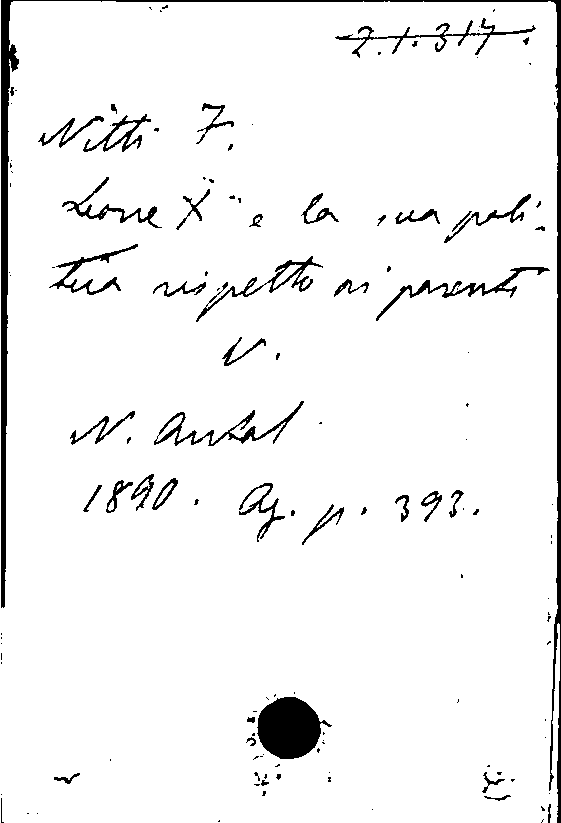 2.1.317.
Nitti F.
Leone X° e la sua poli-
tica rispetto ai parenti
V.
N. Antol
1890. Ag. p. 393.